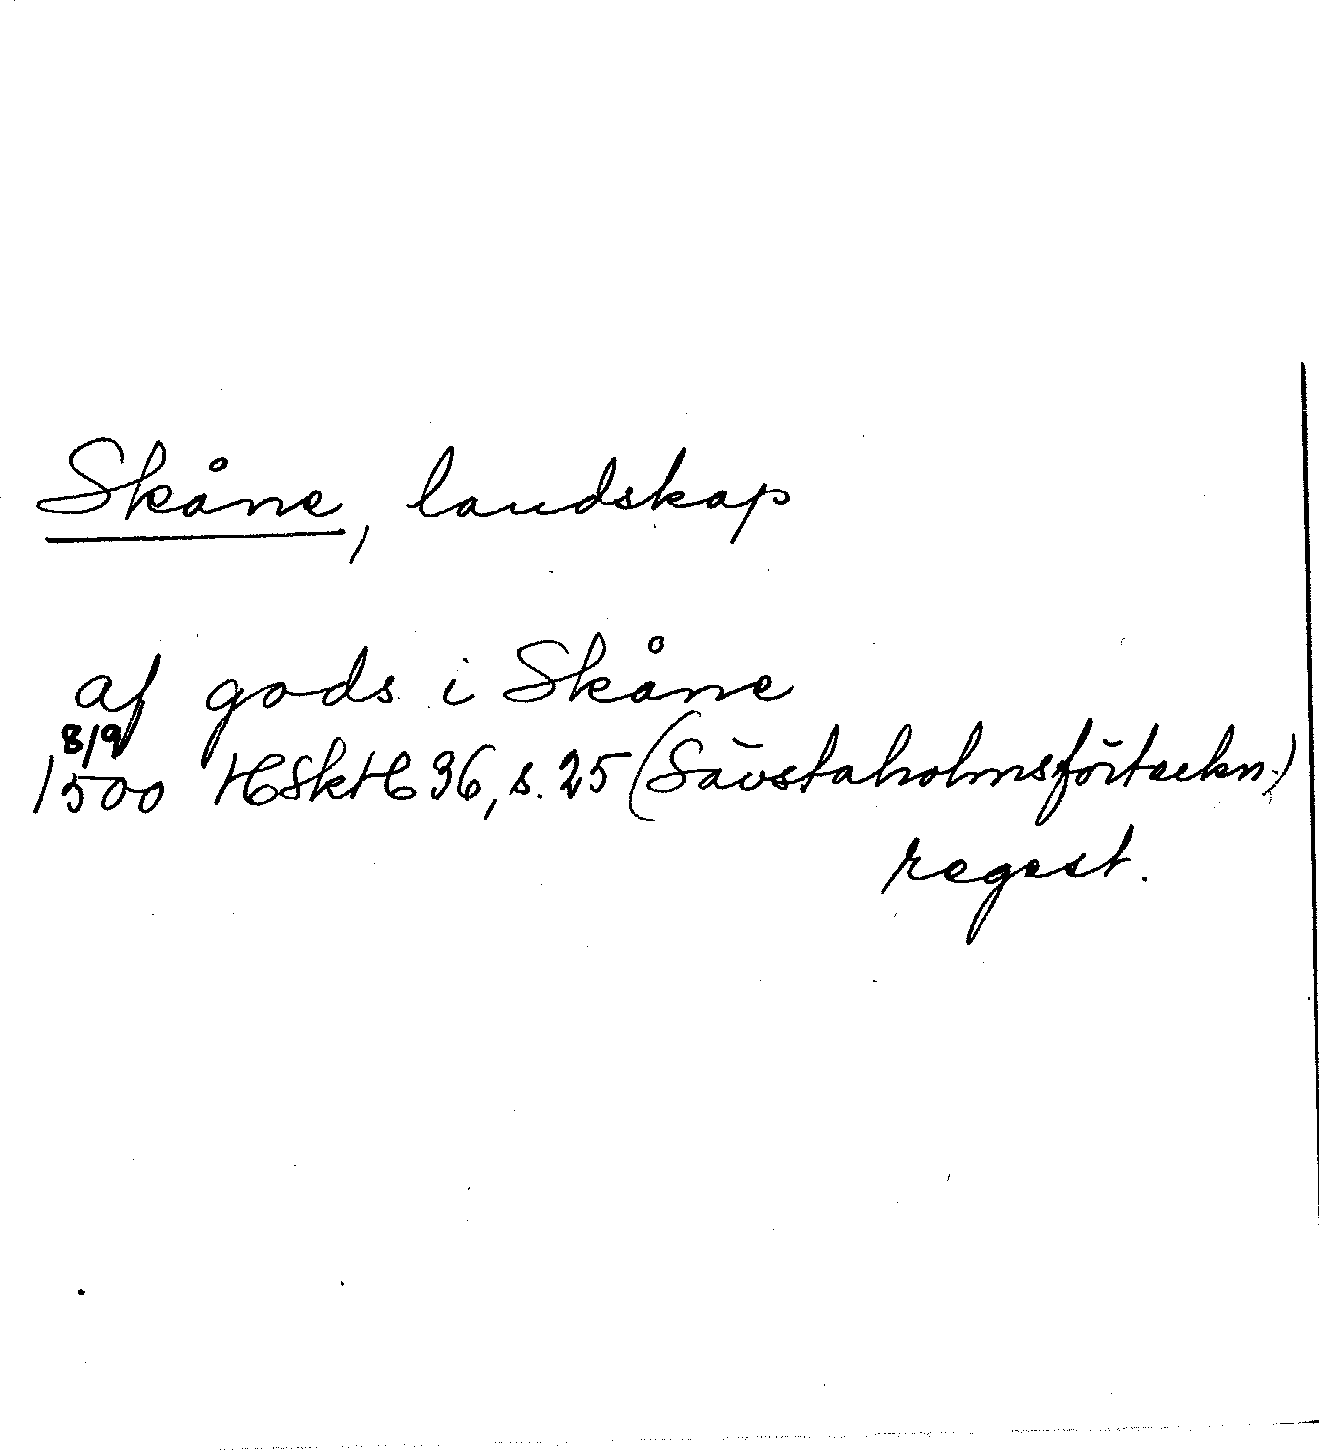 Skåne, landskap
af gods i Skåne
8/9
1500 HSkH 36, s. 25 (Sävstaholmsförteckn.)
regest.